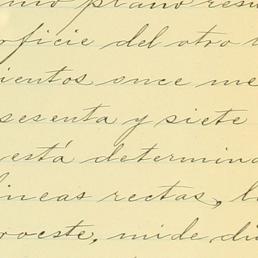 mo plano resu
rficie del otro
ientos once me
sesenta y siete
está determina
lineas rectas, l
roeste, mide di